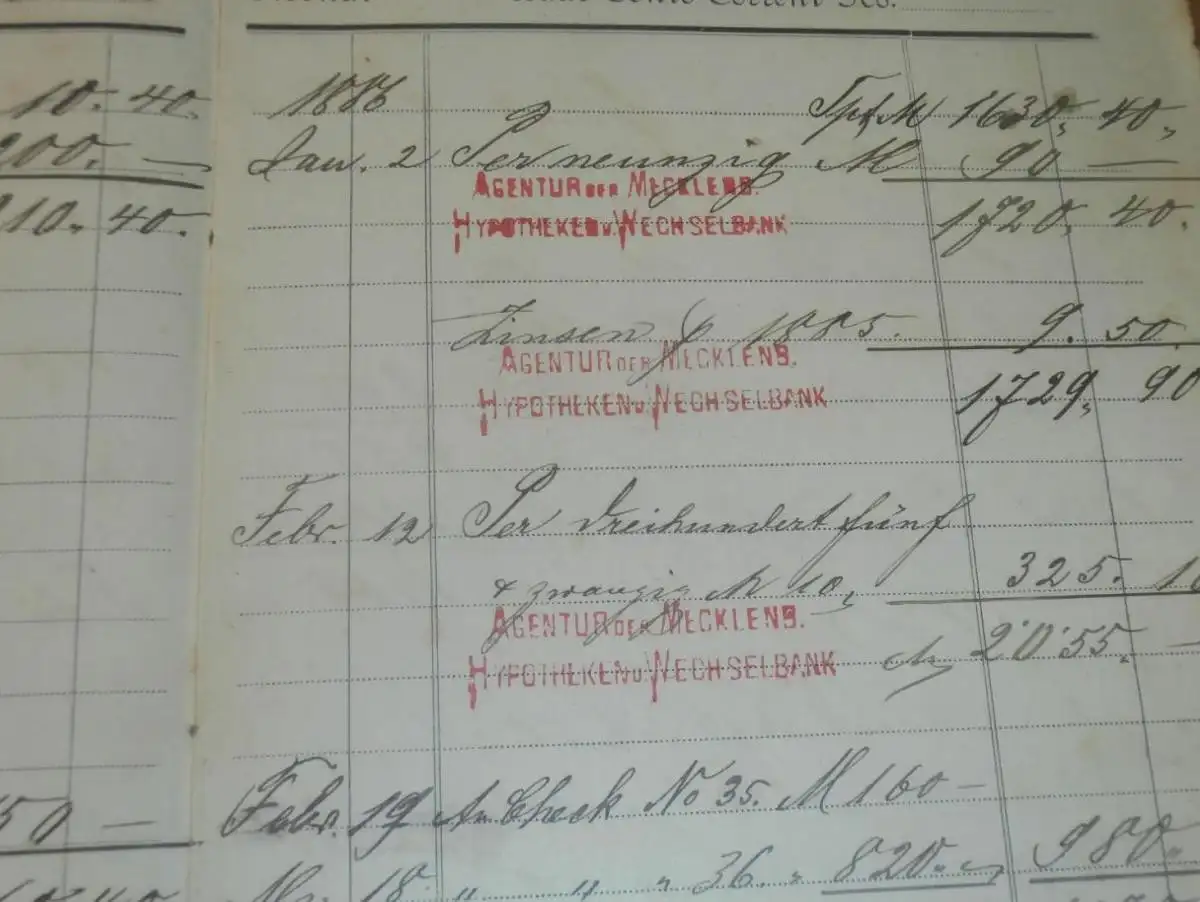 10. 40.
200. —
210. 40.
50 —
1886
Tpt. M 1630. 40.
Jan. 2 Per neunzig M 90 —
AGENTUR DER MECKLENB.
HYPOTHEKEN U. WECHSELBANK
1720. 40.
Zinsen p 1885. 9. 50
AGENTUR DER MECKLENB.
HYPOTHEKEN U. WECHSELBANK
1729. 90
Febr. 12 Per dreihundert fünf
& zwanzig M 10, 325. 10
AGENTUR DER MECKLENB.
HYPOTHEKEN U. WECHSELBANK
M 2055. —
Febr. 19 An Check No 35. M 160 —
18. " " " 36. " 820. — 980.